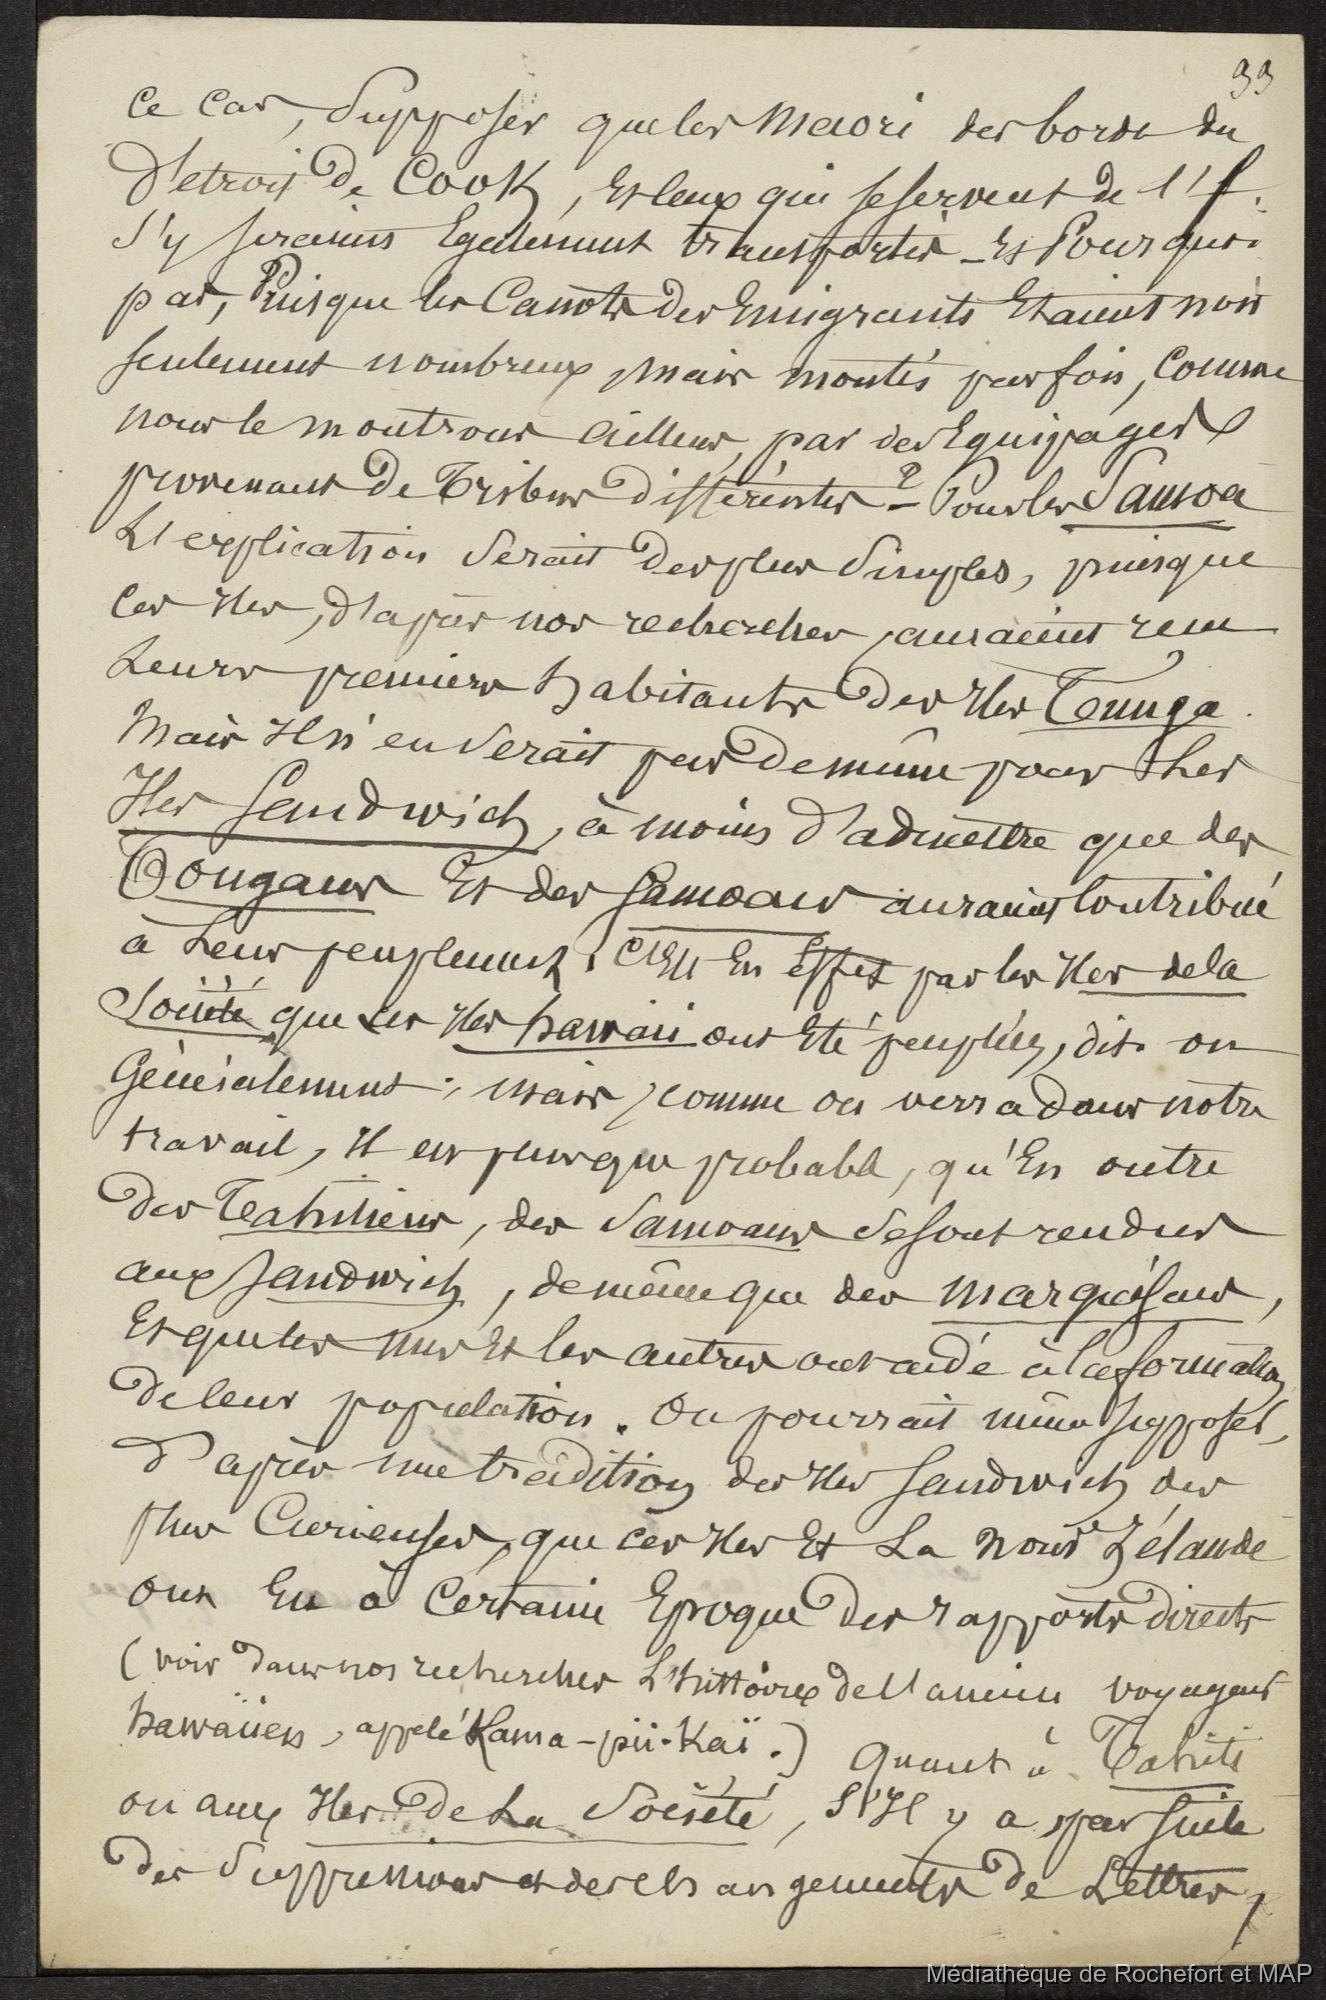 99
ce cas, supposer que les Maori des bords du
Détroit de Cook, et ceux qui se servent de l'f.
s'y seraient également transportés - Et Pourquoi
pas, Puisque les Canots des Emigrants Etaient non
seulement nombreux, mais montés parfois, comme
nous le montrons ailleurs, par des Equipages
provenant de Tribus différentes ? - Pour les Samoa
L'explication serait des plus simples, puisque
ces Iles, d'après nos recherches, auraient reçu
Leurs premiers habitants des Iles Tunga.
Mais Il n'en serait pas de même pour Les
Iles Sandwich, à moins d'admettre que des
Tongans Et des Samoans auraient Contribué
à Leur peuplement. C'Est En effet par les Iles de la
Société que les Iles hawaii ont Eté peuplées, dit-on
Généralement ; mais, comme on verra dans notre
travail, Il est presque probable, qu'En outre
des Tahitiens, des Samoans se sont rendus
aux Sandwich, de même que des Marquésans,
Et que les uns Et les autres ont aidé à la formation
de leur population. On pourrait même supposer,
d'après une tradition des Iles Sandwich des
plus Curieuses, que ces Iles Et La Nouv. Zélande
ont Eu à Certaine Epoque des rapports directs
(voir dans nos recherches L'histoire de l'ancien voyageur
hawaiien, appelé Kama-pii-Kaï.) Quant à Tahiti
ou aux Iles de La Société, s'Il y a par suite
des suppressions et des changements de Lettres,
Médiathèque de Rochefort et MAP